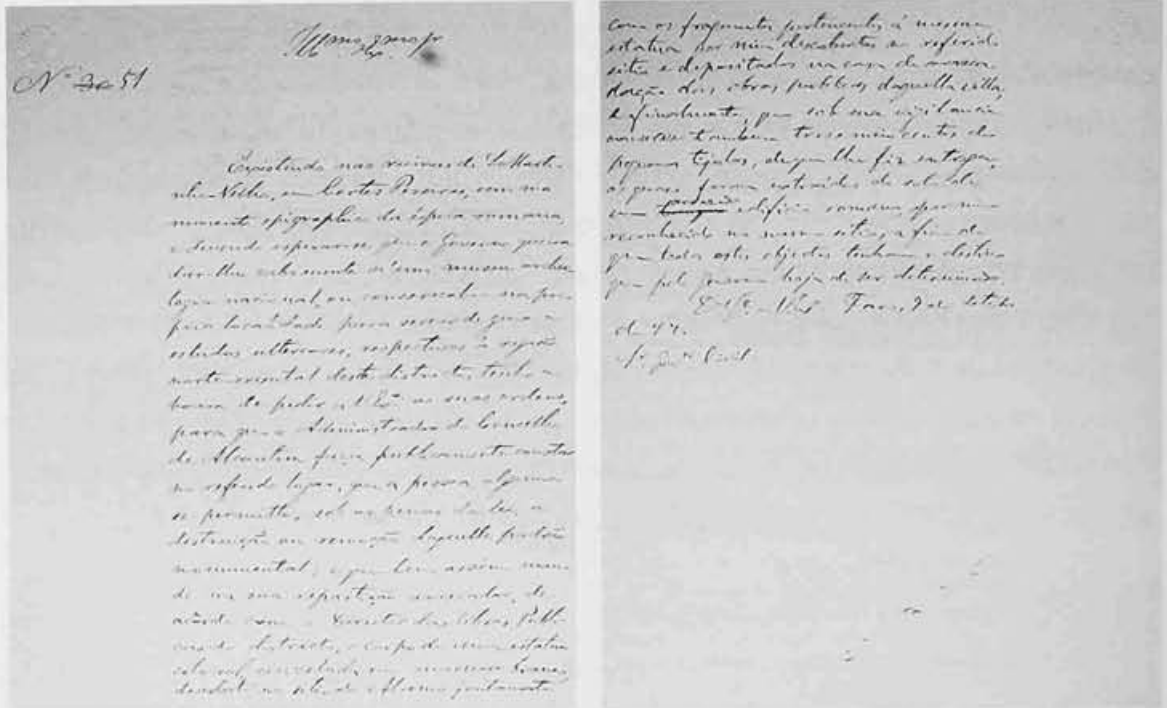 Illmo Exmo Sr
Nº 51
Existindo nas ruinas de
Velha, em Cortes Pereiras, um mo
numento epigraphico da época romana,
e devendo esperar-se, que o Governo queira
dar-lhe cabimento n'um museu archeo
logico nacional, ou conserval-o na pro
pria localidade para servir de guia a
estudos ulteriores, respectivos á região
norte oriental deste districto, tenho a
honra de pedir a V. Exª as suas ordens,
para que o Administrador do Concelho
de Alcoutim faça publicamente constar
no referido logar, que a pessoa alguma
se permitte, sob as penas da lei, a
destruição ou remoção daquelle padrão
monumental; e que bem assim mande
na sua repartição, de
acôrdo com o Director das Obras Publi
cas do districto, o corpo de uma estatua
colossal, em marmore branco,
no sitio do juntamente
com os fragmentos pertencentes á mesma
estatua por mim descobertos no referido
sitio e depositados na casa de arreca
dação das obras publicas daquella villa,
e finalmente, que sob sua vigilancia
conserve tambem trese mil e centos de
pequenos tijolos, de que lhe fiz entrega,
os quaes foram extraidos do solo de
um edificio romano por mim
reconhecido no mesmo sitio, a fim de
que todos estes objectos tenham o destino
que pelo governo haja de ser determinado.
Faro, 7 de
de 77.
Civil